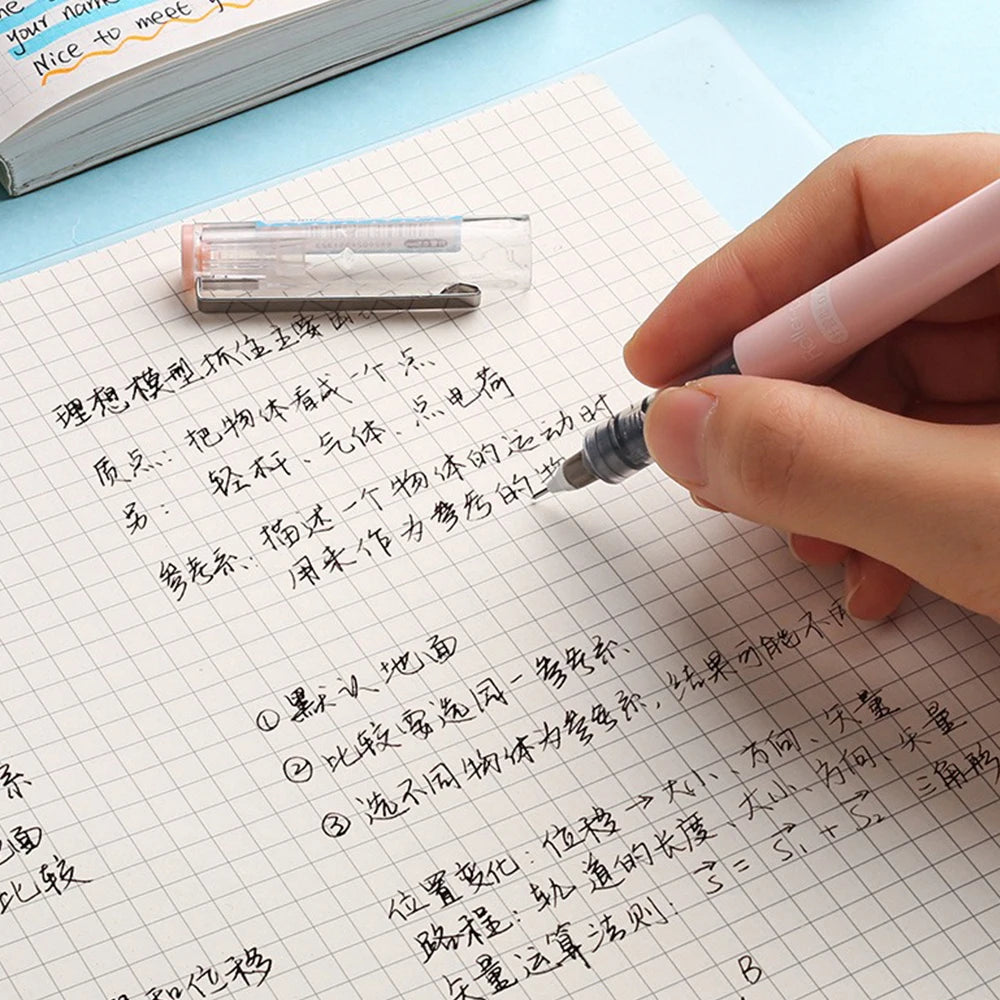 your name
Nice to meet y
理想模型抓住主要
质点:把物体看成一个点
另:轻杆、气体、点电荷
参考系:描述一个物体的运动时
用来作为参考的物
①默认地面
②比较要选同一参考系
③选不同物体为参考系,结果可能不同
位置变化:位移→大小、方向、矢量
路程:轨道的长度、大小、方向、矢量
矢量运算法则: s⃗ = s⃗₁ + s⃗₂ 三角形
B
系
面
比较
和位移
Rollerb